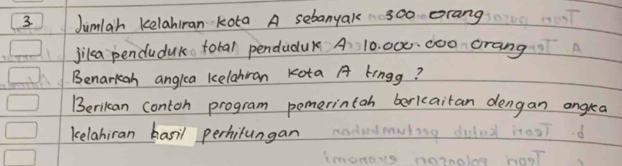 3 Jumlah kelahiran kota A sebanyak 300 orang
jika penduduk total penduduk A 10.000.000 orang
Benarkah angka kelahiran kota A tingg?
Berikan contoh program pemerintah berkaitan dengan angka
kelahiran hasil perhitungan